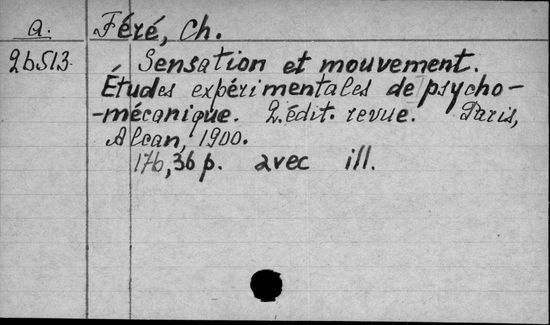 a. Féré, Ch.
26513 Sensation et mouvement.
Études expérimentales de psycho-
-mécanique. 2. édit. revue. Paris,
Alcan, 1900.
176, 36 p. avec ill.